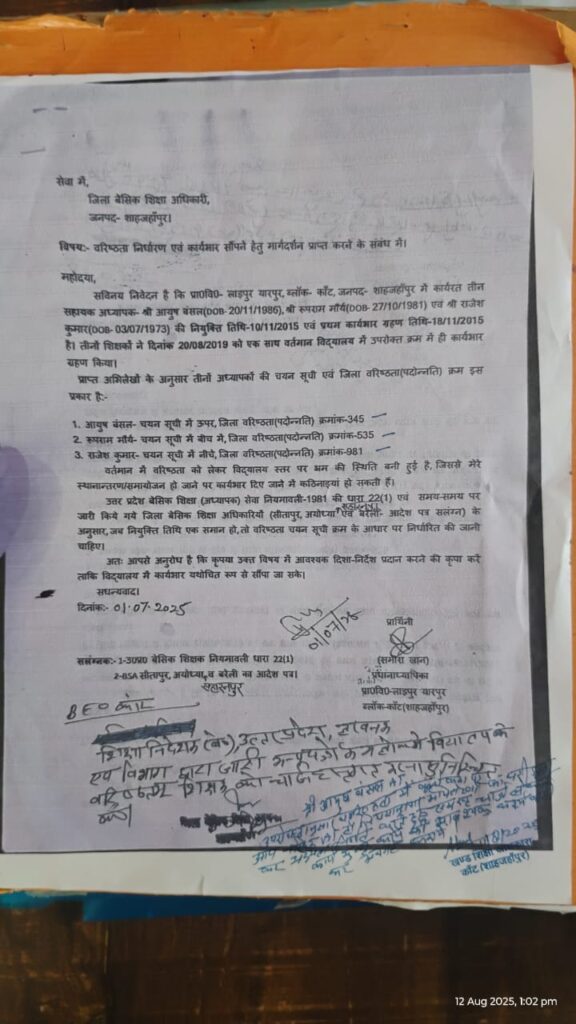 सेवा में,
जिला बेसिक शिक्षा अधिकारी,
जनपद- शाहजहाँपुर।
विषयः- वरिष्ठता निर्धारण एवं कार्यभार सौंपने हेतु मार्गदर्शन प्राप्त करने के संबंध में।
महोदया,
सविनय निवेदन है कि प्रा0वि0- लाइपुर यारपुर, ब्लॉक- काँट, जनपद- शाहजहाँपुर में कार्यरत तीन
सहायक अध्यापक- श्री आयुष बंसल(DOB-20/11/1986), श्री रूपराम मौर्य(DOB-27/10/1981) एवं श्री राजेश
कुमार(DOB-03/07/1973) की नियुक्ति तिथि-10/11/2015 एवं प्रथम कार्यभार ग्रहण तिथि-18/11/2015
है। तीनों शिक्षकों ने दिनांक 20/08/2019 को एक साथ वर्तमान विद्यालय में उपरोक्त क्रम में ही कार्यभार
ग्रहण किया।
प्राप्त अभिलेखों के अनुसार तीनों अध्यापकों की चयन सूची एवं जिला वरिष्ठता(पदोन्नति) क्रम इस
प्रकार हैः-
1. आयुष बंसल- चयन सूची में ऊपर, जिला वरिष्ठता(पदोन्नति) क्रमांक-345
2. रूपराम मौर्य- चयन सूची में बीच में, जिला वरिष्ठता(पदोन्नति) क्रमांक-535
3. राजेश कुमार- चयन सूची में नीचे, जिला वरिष्ठता(पदोन्नति) क्रमांक-981
वर्तमान में वरिष्ठता को लेकर विद्यालय स्तर पर भ्रम की स्थिति बनी हुई है, जिससे मेरे
स्थानान्तरण/समायोजन हो जाने पर कार्यभार दिए जाने में कठिनाइयां हो सकती हैं।
उत्तर प्रदेश बेसिक शिक्षा (अध्यापक) सेवा नियमावली-1981 की धारा 22(1) एवं समय-समय पर
जारी किये गये जिला बेसिक शिक्षा अधिकारियों (सीतापुर, अयोध्या, सहारनपुर एवं बरेली- आदेश पत्र संलग्न) के
अनुसार, जब नियुक्ति तिथि एक समान हो, तो वरिष्ठता चयन सूची क्रम के आधार पर निर्धारित की जानी
चाहिए।
अतः आपसे अनुरोध है कि कृपया उक्त विषय में आवश्यक दिशा-निर्देश प्रदान करने की कृपा करें
ताकि विद्यालय में कार्यभार यथोचित रूप से सौंपा जा सके।
सधन्यवाद।
दिनांकः- 01.07.2025
प्रार्थिनी
(समीरा खान)
प्रधानाध्यापिका
प्रा0वि0-लाइपुर यारपुर
ब्लॉक-काँट(शाहजहाँपुर)
संलग्नकः- 1-उ0प्र0 बेसिक शिक्षक नियमावली धारा 22(1)
2-BSA सीतापुर, अयोध्या, सहारनपुर व बरेली का आदेश पत्र।
BEO काँट
शिक्षा निदेशक (बे0), उत्तर प्रदेश, लखनऊ
एवं विभाग द्वारा जारी विद्यालय के
वरिष्ठतम शिक्षक
श्री आयुष बंसल
खण्ड शिक्षा अधिकारी
काँट (शाहजहाँपुर)
12 Aug 2025, 1:02 pm